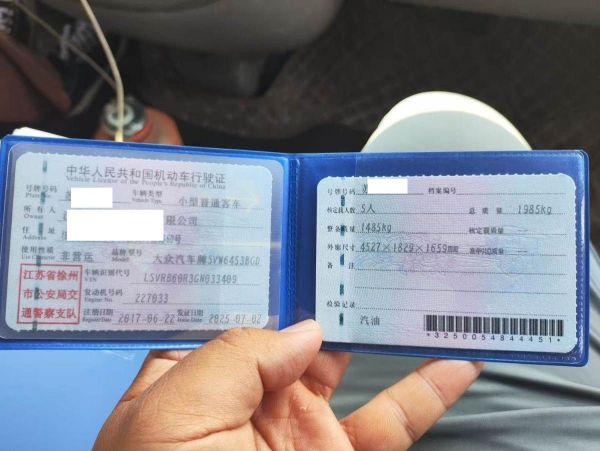 中华人民共和国机动车行驶证
Vehicle License of the People's Republic of China
号牌号码
车辆类型 小型普通客车
Vehicle Type
所有人 限公司
Owner
住址
Address
使用性质 非营运 品牌型号 大众汽车牌SVW6453BGD
Use Character
江苏省徐州
市公安局交
通警察支队
车辆识别代号 LSVRB60R3GN033409
VIN
发动机号码 227033
Engine No.
注册日期 2017-06-22 发证日期 2025-07-02
Register Date Issue Date
号牌号码 档案编号
核定载人数 5人 总质量 1985kg
整备质量 1485kg 核定载质量
外廓尺寸 4527×1829×1659 准牵引总质量
备注
检验记录
汽油
*3250054844451*